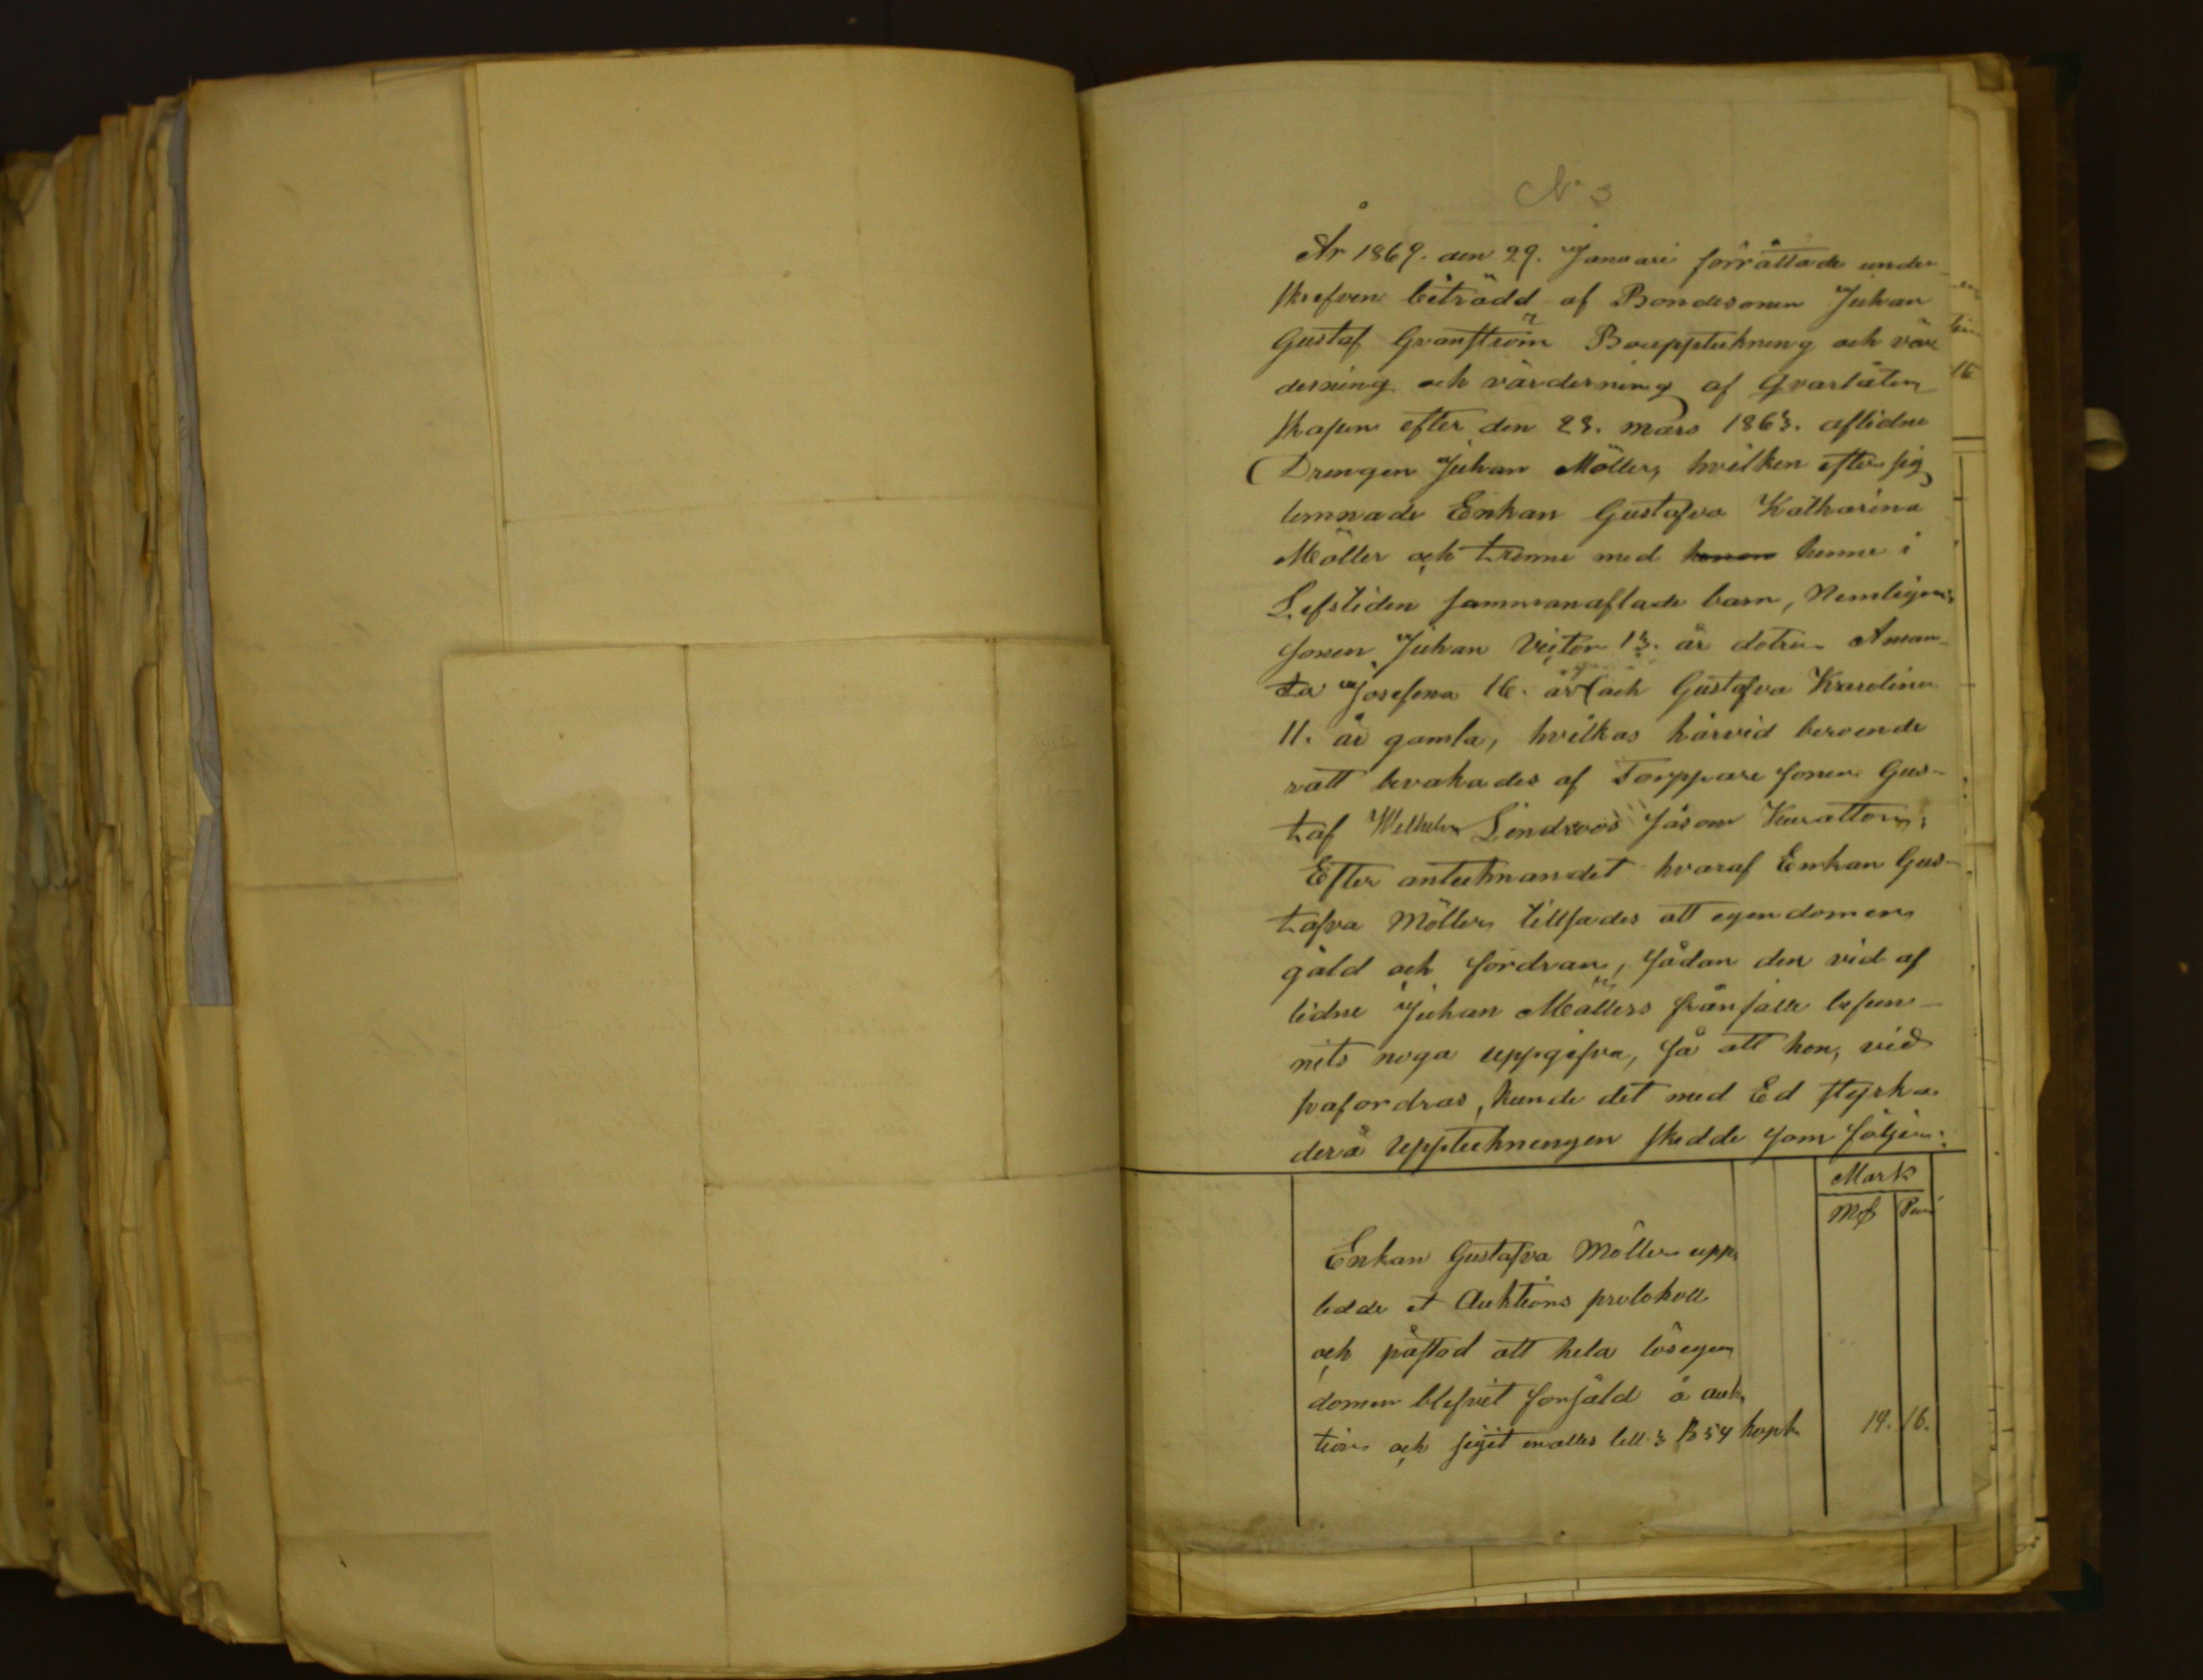 N° 3
År 1869. den 29. Januari förrättade under-
skrefven biträdd af Bondesonen Juhan
Gustaf Granström Bouppteckning och vär
derning och värderning af Qvarlåten
skapen efter den 23. mars 1863. aflidne
Drengen Juhan Möller, hvilken efter sig
lemnade Enkan Gustafva Katharina
Möller och trenne med honom henne i
Lefstiden sammanaflade barn, Nemligen,
sonen Juhan Victor 13. år dotren Aman-
da Josefina 16. år och Gustafva Karolina
11. år gamla, hvilkas härvid beroende
rätt bevakades af Torppare sonen Gus-
taf Wilhelm Lindroos såsom Kurattor;
Efter antecknandet hvaraf Enkan Gus-
tafva Möller tillsades att egendomen
gäld och fordran, sådan den vid af
lidne Juhan Möllers frånfälle befun-
nits noga uppgifva, så att hon, vid
påfordras, kunde det med Ed styrka
derå Uppteckningen skedde som följer:
Mark
Mk Pen
Enkan Gustafva Möller upp,
tedde et Auktions protokoll
och påstod att hela lösegen
domen blefvit forsåld å auk,
tion och sigit en alles till 3 R 54 kopk 14. 16.
16